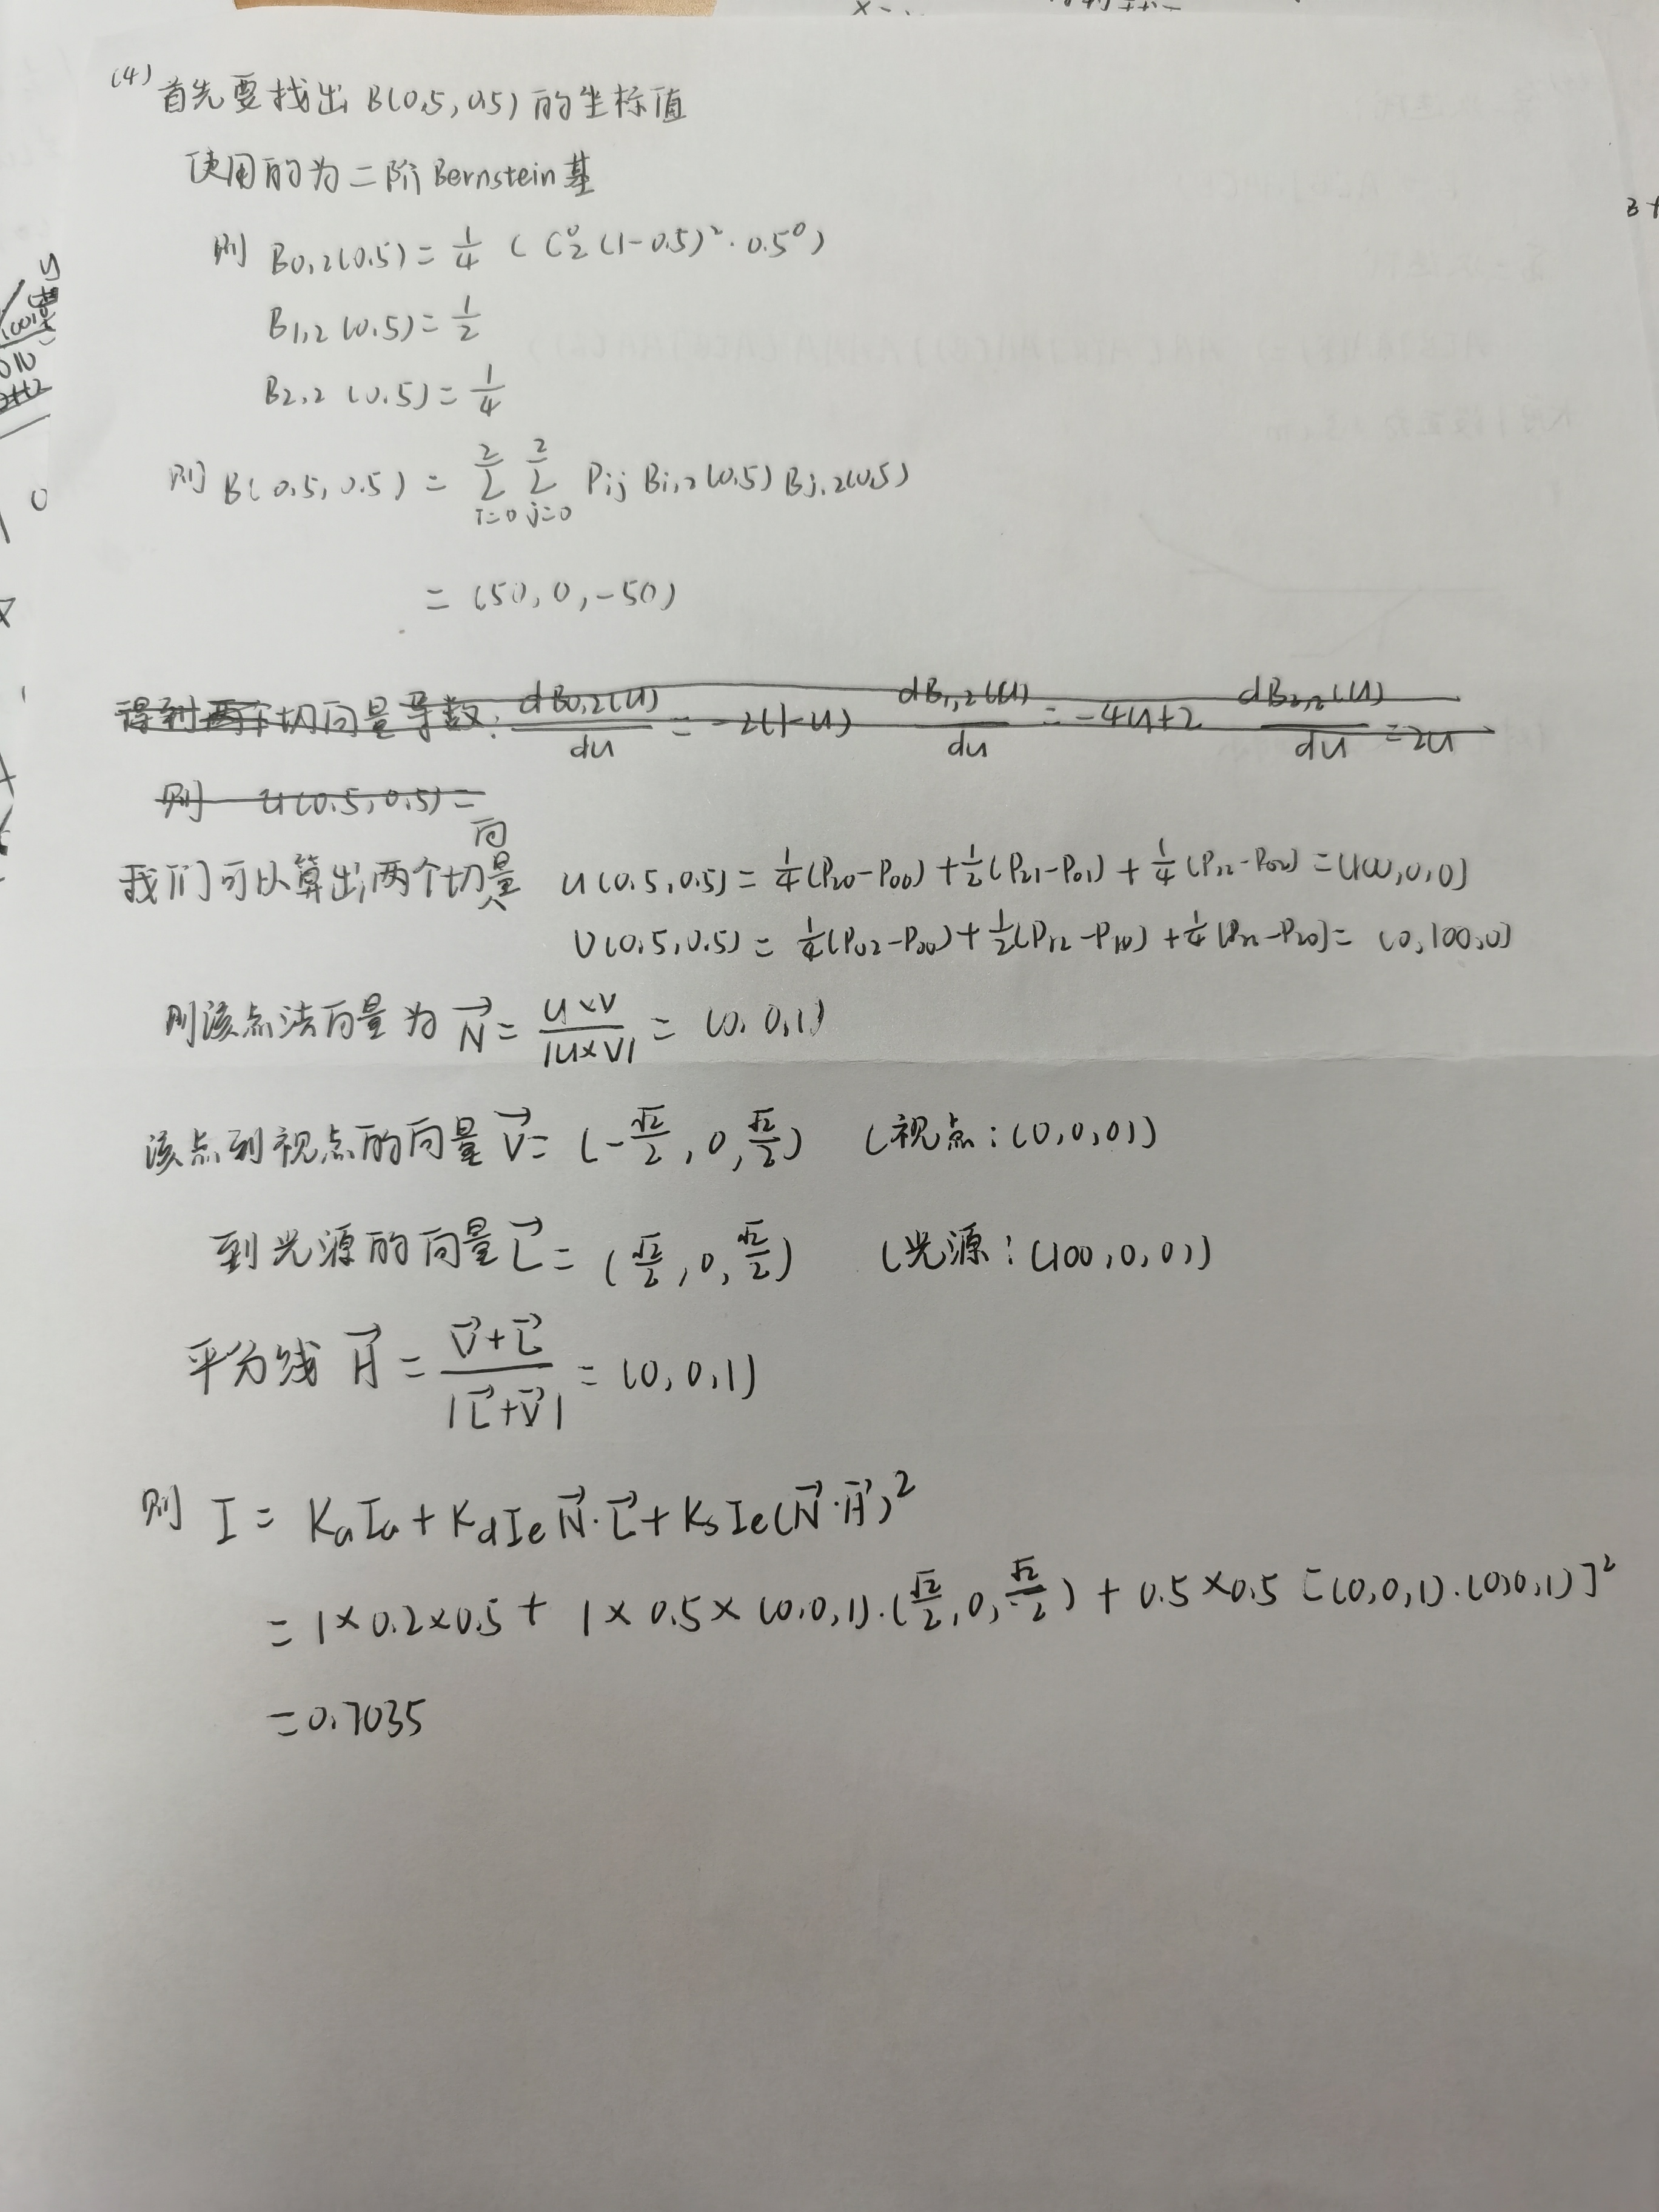 (4) 首先要找出 B(0.5, 0.5) 的坐标值
使用的为二阶 Bernstein 基
则 B0,2(0.5) = 1/4 ( C₂⁰ (1-0.5)² · 0.5⁰ )
B1,2 (0.5) = 1/2
B2,2 (0.5) = 1/4
则 B(0.5, 0.5) = Σ_{i=0}^{2} Σ_{j=0}^{2} Pij Bi,2(0.5) Bj,2(0.5)
= (50, 0, -50)
得到两个切向量导数: dB0,2(u)/du = -2(1-u) dB1,2(u)/du = -4u+2 dB2,2(u)/du = 2u
则 u(0.5, 0.5) =
我们可以算出两个切向量 u(0.5, 0.5) = 1/4(P20-P00) + 1/2(P21-P01) + 1/4(P22-P02) = (100, 0, 0)
V(0.5, 0.5) = 1/4(P02-P00) + 1/2(P12-P10) + 1/4(P22-P20) = (0, 100, 0)
则该点法向量为 N⃗ = u×V/|u×V| = (0, 0, 1)
该点到视点的向量 V⃗ = (-√2/2, 0, √2/2) (视点: (0, 0, 0))
到光源的向量 L⃗ = (√2/2, 0, √2/2) (光源: (100, 0, 0))
平分线 H⃗ = V⃗+L⃗/|L⃗+V⃗| = (0, 0, 1)
则 I = KaIa + KdIe N⃗·L⃗ + KsIe(N⃗·H⃗)²
= 1×0.2×0.5 + 1×0.5×(0,0,1)·(√2/2, 0, √2/2) + 0.5×0.5 [(0,0,1)·(0,0,1)]²
= 0.7035